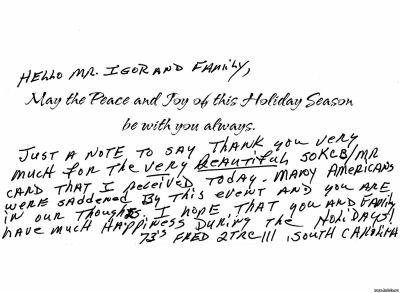 HELLO MR. IGOR AND FAMILY,
May the Peace and Joy of this Holiday Season
be with you always.
JUST A NOTE TO SAY THANK YOU VERY
MUCH FOR THE VERY BEAUTIFUL 50KCB/MR
CARD THAT I RECEIVED TODAY. MANY AMERICANS
WERE SADDENED BY THIS EVENT AND YOU ARE
IN OUR THOUGHTS. I HOPE THAT YOU AND FAMILY
HAVE MUCH HAPPINESS DURING THE HOLIDAYS!
73'S FRED 2TRE111, SOUTH CAROLINA